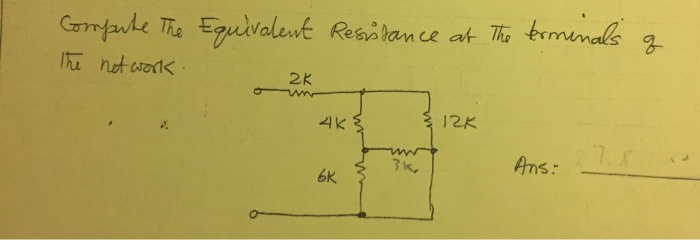 Compute The Equivalent Resistance at The terminals of
The network.
2K
4K
12K
3K.
6K
Ans: